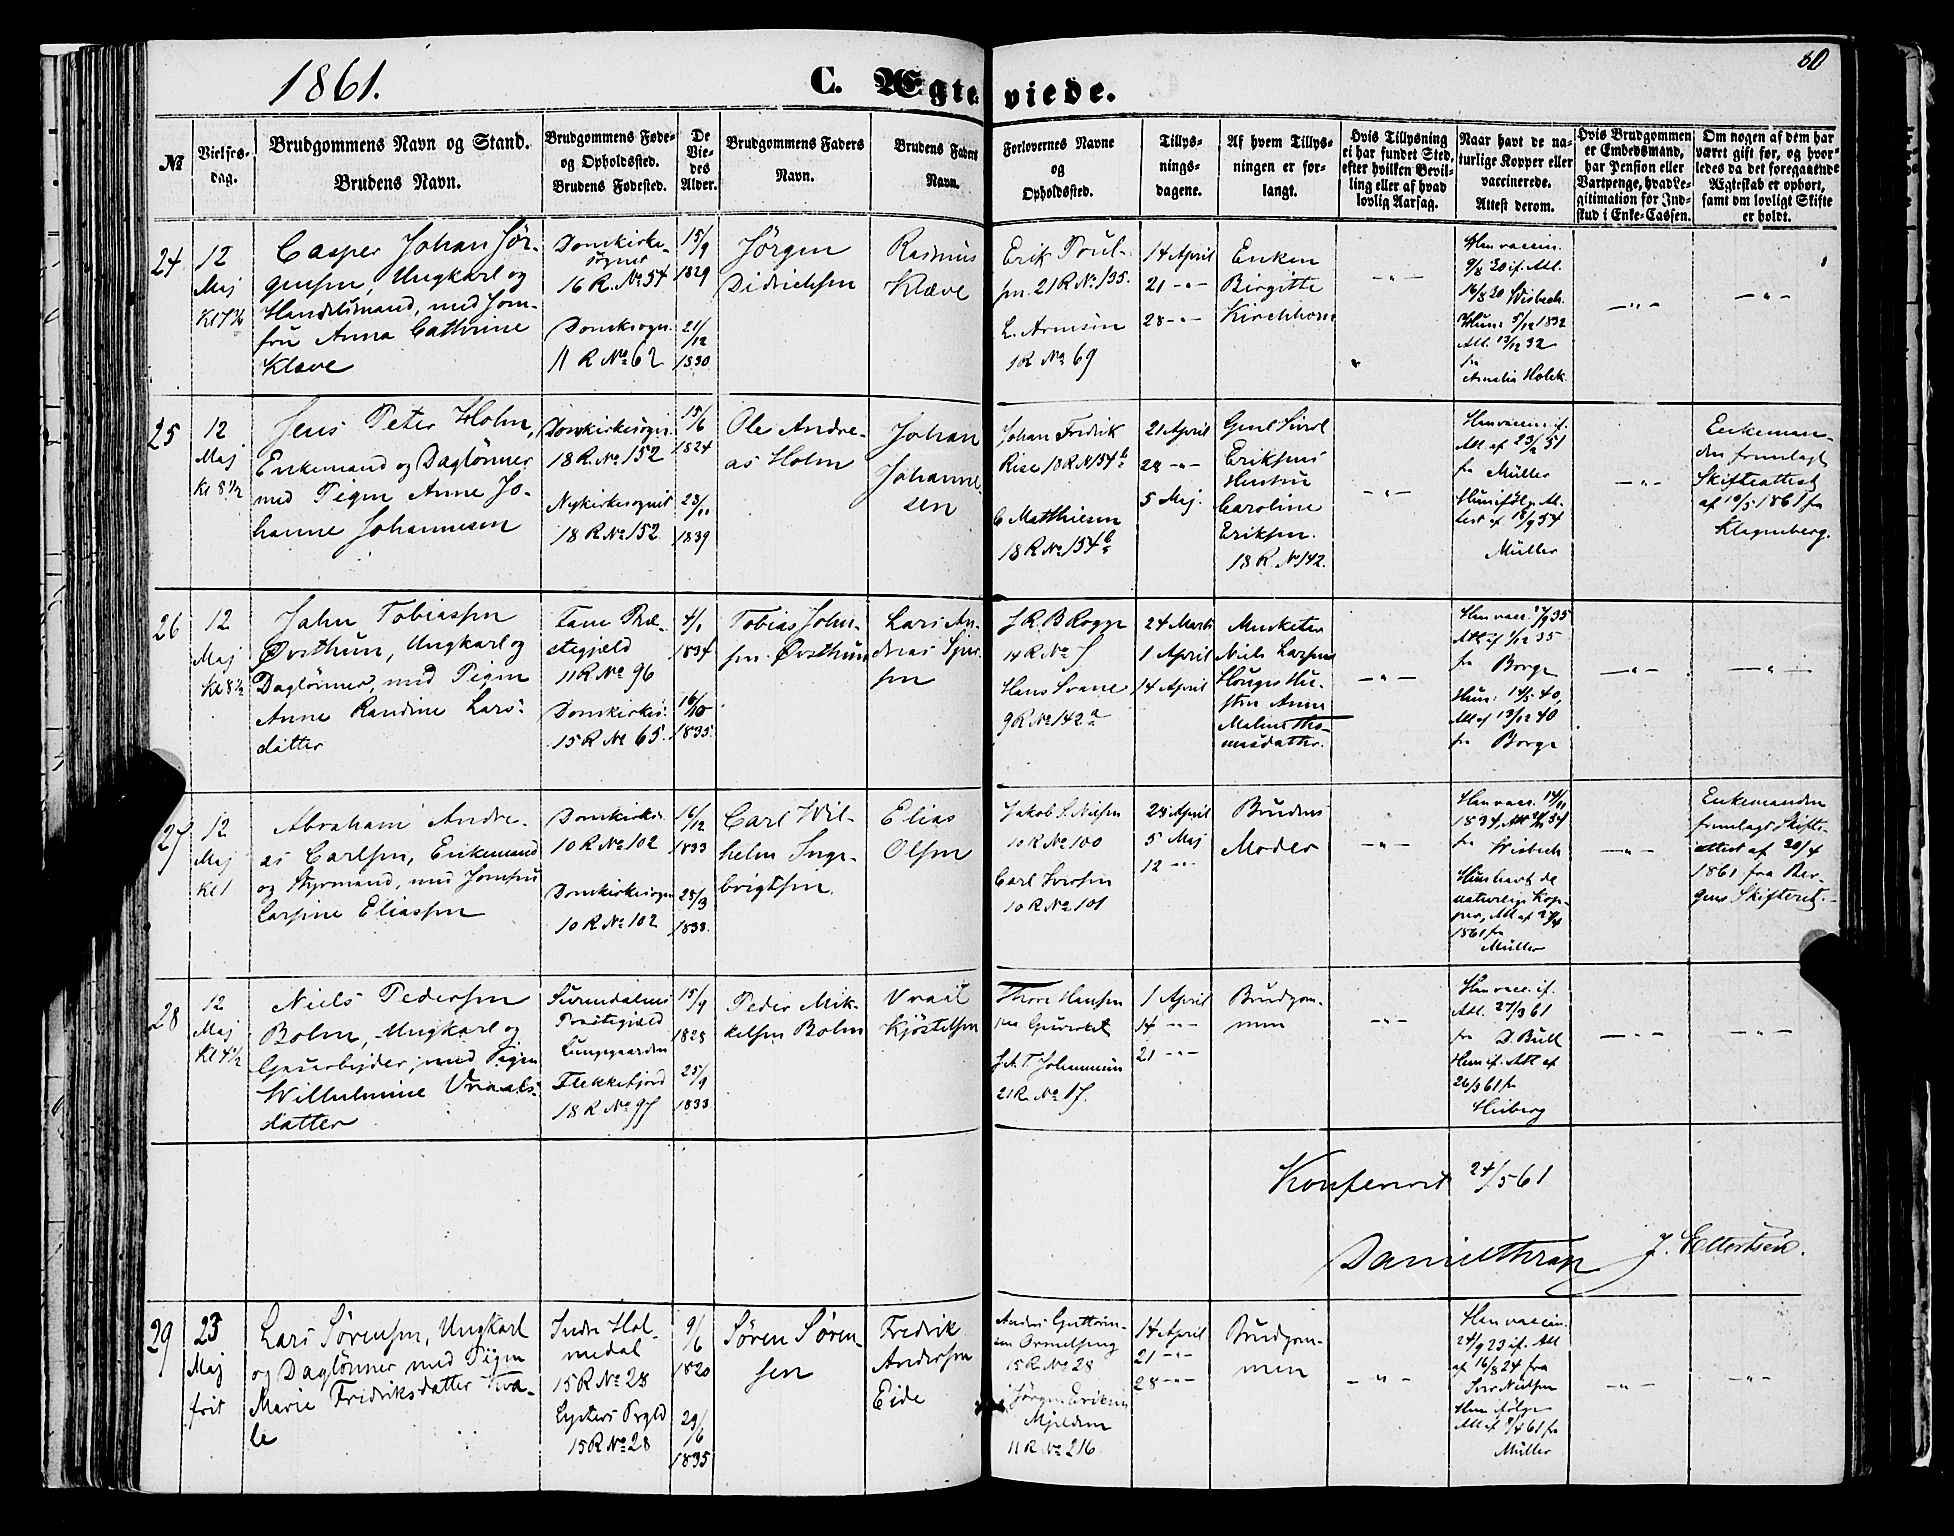 1861.
C. Ægteviede.
80
№
Vielses-
dag.
Brudgommens Navn og Stand.
Brudens Navn.
Brudgommens Føde-
og Opholdssted.
Brudens Fødested.
De
Vie-
des
Alder.
Brudgommens Faders
Navn.
Brudens Faders
Navn.
Forlovernes Navne
og
Opholdssted.
Tillys-
nings-
dagene.
Af hvem Tillys-
ningen er for-
langt.
Hvis Tillysning
ei har fundet Sted,
efter hvilken Bevil-
ling eller af hvad
lovlig Aarsag.
Naar havt de na-
turlige Kopper eller
vaccinerede.
Attest derom.
Hvis Brudgommen
er Embedsmand,
har Pension eller
Vartpenge, hvad Le-
gitimation for Ind-
skud i Enke-Cassen.
Om nogen af dem har
været gift før, og hvor-
ledes da det foregaaende
Ægteskab er ophørt,
samt om lovligt Skifte
er holdt.
24
12
Maj
Casper Johan Jør-
gensen, Ungkarl og
Handelsmand, med Jom-
fru Anna Cathrine
Klæve
Domkirke-
sognet
16 R. No 54
Domk.sogn.
11 R No 62
15/9
1829
21/12
1830
Jørgen
Didrichsen
Rasmus
Klæve
Erik Poul-
sen. 21 R No 135.
L. Arnesen
1 R No 69
14 April
21 -"-
28 -"-
Enken
Birgitte
Kirchhorn
-"-
Han vaccin.
9/8 30 if. Att.
16/8 30 Wisbech.
Hun: 5/12 1832
Att. 13/12 32
fra
Amalia Holck
-"-
-"-
25
12
Maj
Kl 8 1/2
Jens Peter Holm,
Enkemand og Daglønner
med Pigen Anne Jo-
hanne Johannesen
Domkirkesogn.
18 R. No 152
Nykirkesognet
18 R No 152
15/6
1824
23/11
1839
Ole Andre-
as Holm
Johan
Johanne-
sen
Johan Fredrik
Rise 18 R N 154 b
C Matthiesen
18 R No 154 b
21 April
28 -"-
5 Maj.
Eriksens
Hustru
Caroline
Eriksen.
18 R N 142.
-"-
Han vaccin. if.
Att af 23/2 51
fra Müller
Hun ifølge At-
test af 18/9 54
Müller
-"-
Enkeman-
den fremlagt
Skifteattest
af 10/5 1861 fra
Klagenberg.
26
12
Maj
Kl 8 1/2
Jahn Tobiassen
Østhun, Ungkarl og
Daglønner, med Pigen
Anne Randine Lars-
datter
Fane Præ-
stegjeld
11 R No 96
Domkirkes.
15 R No 65.
4/1
1834
16/10
1835.
Tobias John-
sen Østhun
Lars An-
dreas Sjur-
sen
J. R. B Rogge
14 R No 7
Hans Svane
9 R No 142 a
24 Marts
1 April
14 April
Musketer
Niels Larsen
Houges Hu-
stru Anne
Malene Tho-
masdatter.
-"-
Att af 1/12 35
fra Borge
Hun: 14/5 40,
Att af 13/12 40
fra Borge
-"-
-"-
27
12
Maj
Kl 1
Abraham Andre-
as Carlsen, Enkemand
og Styrmand, med Jomfru
Larsine Eliassen
Domkirks.
10 R No 102
Domkirkesogn
10 R No 102
16/12
1833
28/3
1833.
Carl Wil-
helm Inge-
brigtsen.
Elias
Olsen
Jakob S. Nielsen
10 R No 100
Carl Iversen
10 R No 101
28 April
5 Maj
12 -"-
Brudens
Moder
-"-
Han vacc. 14/11
fra Wisbech
Hun havt de
naturlige Kop-
per, Att af 27/4
1861 fra
Müller
-"-
Enkemanden
fremlagt Skifte-
attest af 20/4
1861 fra Ber-
gens Skifteret.-
28
12
Maj
Kl 4 1/2
Niels Pedersen
Bolm, Ungkarl og
Gasarbejder, med Pigen
Wilhelmine Vraals-
datter
Surendalens
Præstegjeld
Lungegaarden
Flekkefjord
18 R No 97
15/9
1828
25/9
1833
Peder Mik-
kelsen Bolm
Vraal
Kjøstelsen
Thore Hansen
Gasverket
J. A. T. Johannesen
21 R No 17.
1 April
14 -"-
21 -"-
Brudgom-
men
-"-
Han vacc. if.
Att. 27/3 61
fra D. Bull
Hun if. Att af
26/3 61 fra
Heiberg
-"-
-"-
Konfereret 24/5 61
Daniel Thrap J. Ellertsen.
29
23
Maj
frit
Lars Sørensen, Ungkarl
og Daglønner med Pigen
Marie Fredriksdatter Kva-
le
Indre Hol-
medal
15 R No 28
Lysters Prgld
15 R No 28
9/6
1820
29/6
1835
Søren Søren-
sen
Fredrik
Andersen
Eide
15 R No 28
Jørgen Eriksen
Mjeldem
11 R No 216
14 April
21 -"-
28 -"-
Brudgom-
men
-"-
Han vaccin.
24/9 23 if. Att
af 16/8 24 fra
Hun ifølge
Att af 9/4 61 fra
Müller
-"-
-"-